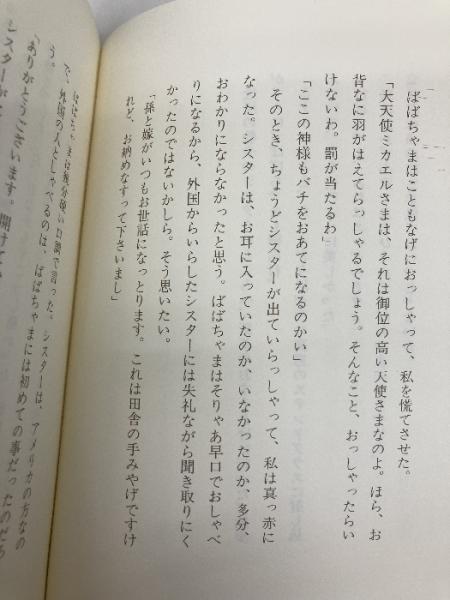 ばばちゃまはこともなげにおっしゃって、私を慌てさせた。
「大天使ミカエルさまは、それは御位の高い天使さまなのよ。ほら、お
背なに羽がはえてらっしゃるでしょう。そんなこと、おっしゃったらい
けないわ。罰が当たるわ」
「ここの神様もバチをおあてになるのかい」
そのとき、ちょうどシスターが出ていらっしゃって、私は真っ赤に
なった。シスターは、お耳に入っていたのか、いなかったのか、多分、
おわかりにならなかったと思う。ばばちゃまはそりゃあ早口でおしゃべ
りになるから、外国からいらしたシスターには失礼ながら聞き取りにく
かったのではないかしら。そう思いたい。
「孫と嫁がいつもお世話になっとります。これは田舎の手みやげですけ
れど、お納めなすって下さいまし」
ばばちゃまは幾分硬い口調で言った。シスターは、アメリカの方なの
で、外国の人としゃべるのは、ばばちゃまには初めての事だったのだろ
う。
「ありがとうございます。開けて
シスターが